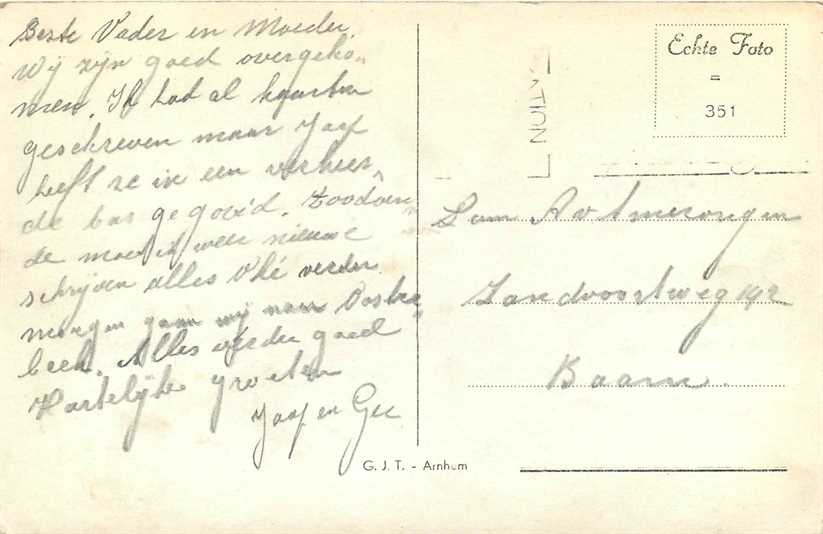 Beste Vader en Moeder.
Wij zijn goed overgeko„
men. Ik had al kaarten
geschreven maar Jaap
heeft ze in een verkeer„
de bus gegooi'd. Zoodoen„
de moest ik weer nieuwe
schrijven alles O ké verder
morgen gaan wij naar Ooster„
beek. Alles verder goed
Hartelijke groeten
Jaap en Gee
Echte Foto
=
351
Fam A v Amerongen
Zandvoortweg 192
Baarn.
G. J. T. - Arnhem